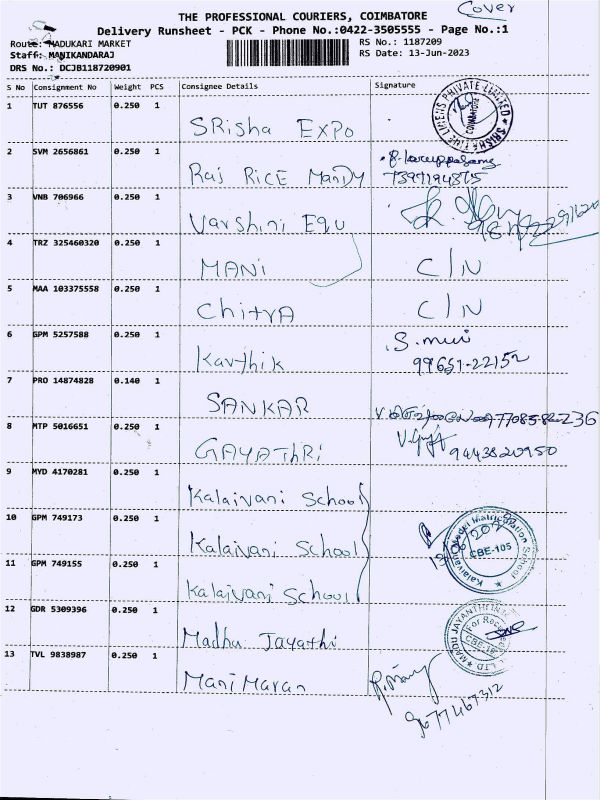 Cover
THE PROFESSIONAL COURIERS, COIMBATORE
Delivery Runsheet - PCK - Phone No.:0422-3505555 - Page No.:1
Route: MADUKARI MARKET
RS No.: 1187209
Staff: MANIKANDARAJ
RS Date: 13-Jun-2023
DRS No.: DCJB118720901
S No Consignment No Weight PCS Consignee Details Signature
1 TUT 876556 0.250 1
SRisha Expo
SRISHA FINE LINENS PRIVATE LIMITED
COIMBATORE
2 SVM 2656861 0.250 1
Raj RICE Mandy
3 VNB 706966 0.250 1
Varshini Equ
4 TRZ 325460320 0.250 1
MANI C/N
5 MAA 103375558 0.250 1
ChitrA C/N
6 GPM 5257588 0.250 1
Karthik S.
99651-22152
7 PRO 14874828 0.140 1
SANKAR
8 MTP 5016651 0.250 1
GAYAThRi 9443820950
9 MYD 4170281 0.250 1
Kalaivani School
10 GPM 749173 0.250 1
Kalaivani School
Kalaivani Model Matriculation School
CBE-105
11 GPM 749155 0.250 1
Kalaivani School
12 GDR 5309396 0.250 1
Madhu Jayathi
13 TVL 9838987 0.250 1
Mani Maran
9677467312